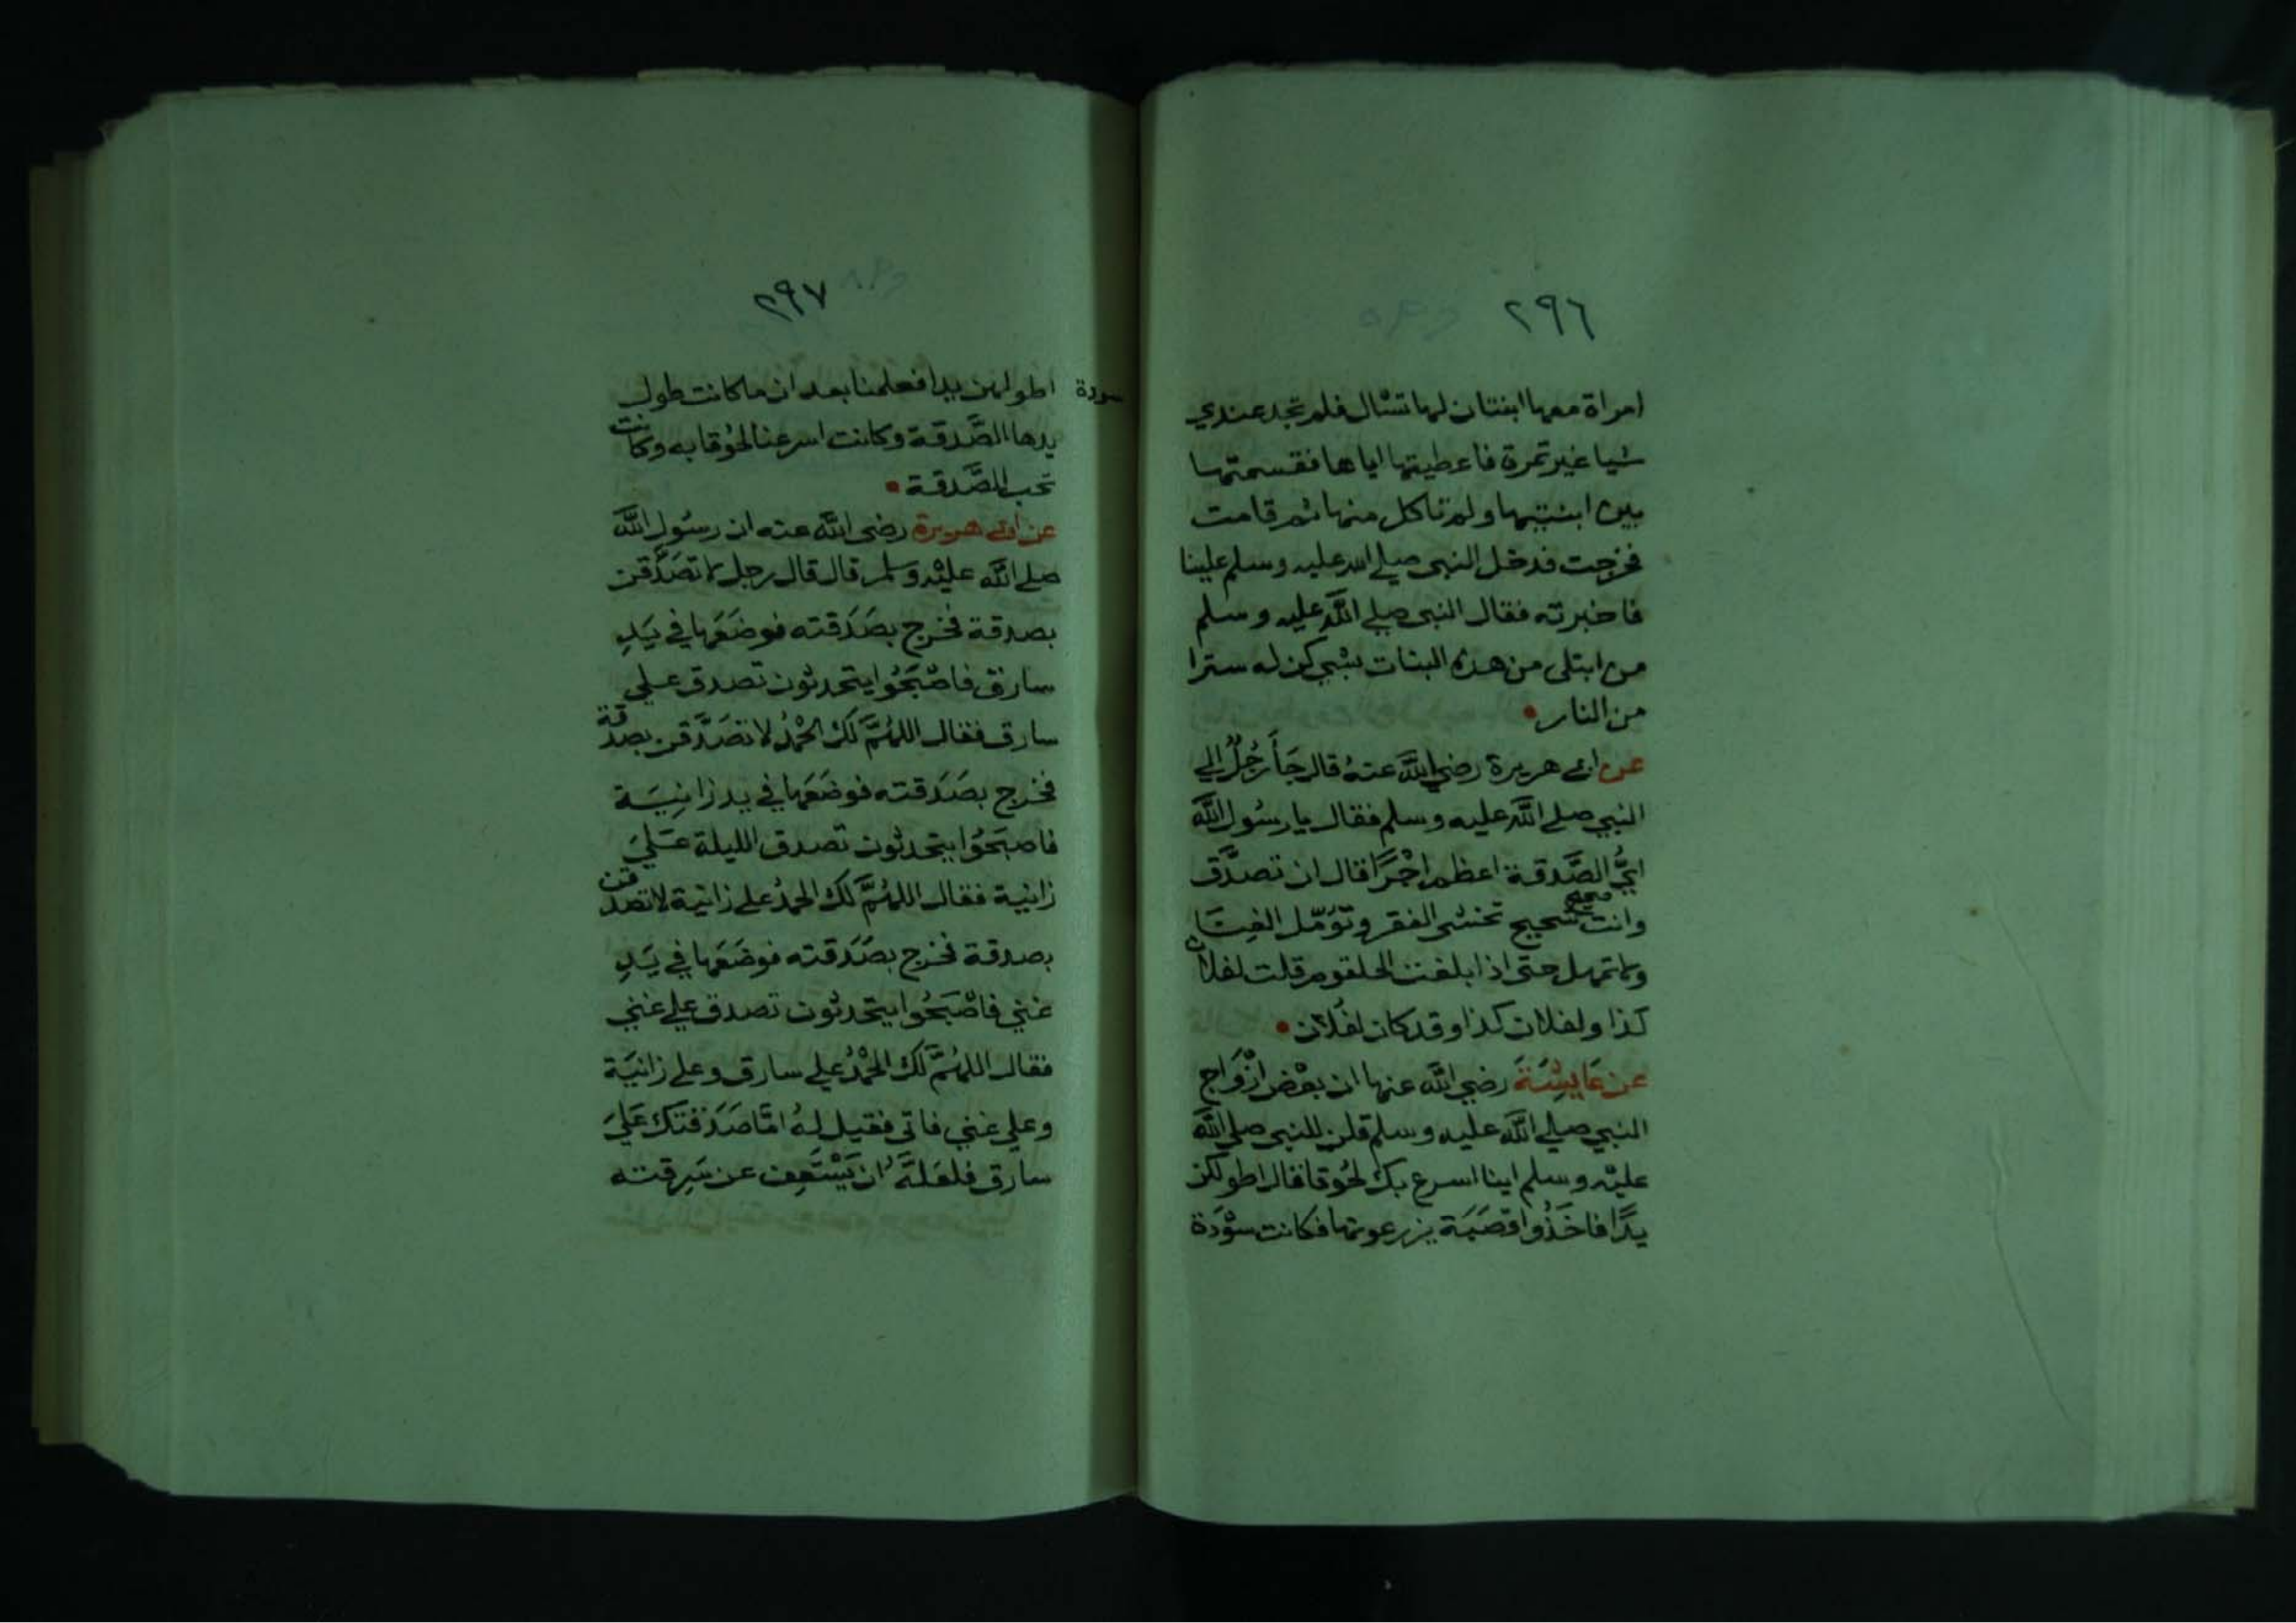 ٢٩٦
امراة معها ابنتان لها تسٔال فلم تجد عندي
شيا غير تمرة فاعطيتها اياها فقسمتها
بين ابنتيها ولم تاكل منها ثم قامت
فخرجت فدخل النبي صلي الله عليه وسلم علينا
فاخبرته فقال النبي صلي اللّه عليه وسلم
من ابتلي من هذه البنات بشي كن له سترا
من النار
عن ابي هريرة رضي اللّه عنهُ قال جَأَ رَجُلٌ الي
النبي صلي اللّه عليه وسلم فقال يا رسُول اللّه
ايُّ الصَّدقة اعظم اجْرًا قال ان تصدَّق
وانت صحيح شحيح تخشى الفقر وتؤمّل الغِنَا
ولا تمهل حتى اذا بلغت الحلقوم قلت لفلان
كذا ولفلان كذا وقد كان لفُلان
عن عَايِشَةَ رضي اللّه عنها ان بعْضَ ازْوَاج
النبي صلي اللّه عليه وسلم قلن للنبي صلي اللّه
عليْه وسلم اينا اسرع بك لحُوقا فقال اطولكن
يدًا فاخَذُوا قصَبَة يزرعونها فكانت سوْدَة
٢٩٧
سودة اطولهن يدا فعلمنا بعد ان ما كانت طول
يدها الصَّدقة وكانت اسرعنا لحُوقا به وكانت
تحب الصَّدقة
عن ابي هريرة رضي اللّه عنه ان رسُول اللّه
صلي اللّه عليْه وَسلم قال قال رجل لاتصَدَّقن
بصدقة فخرج بصَدَقته فوضَعَها في يَدِ
سارق فاصْبَحُوا يتحدثون تصدق علي
سارق فقال اللهُمَّ لك الحمْدُ لاتصَدَّقن بصدقة
فخرج بصَدَقته فوضَعَها في يد زانِيَة
فاصبَحُوا يتحدثون تصدق الليلة عَليَ
زانية فقال اللهُمَّ لك الحمدُ علي زانية لاتصدقن
بصدقة فخرج بصَدَقته فوضَعَها في يَدِ
غني فاصْبَحُوا يتحدثون تصدق علي غني
فقال اللهُمَّ لك الحمْدُ علي سارق وعلي زانيَة
وعلي غني فاتي فقيل لهُ امَّا صَدَقتك عَليَ
سارق فلعَلهَّ ان يَسْتَعِف عن سَرِقته